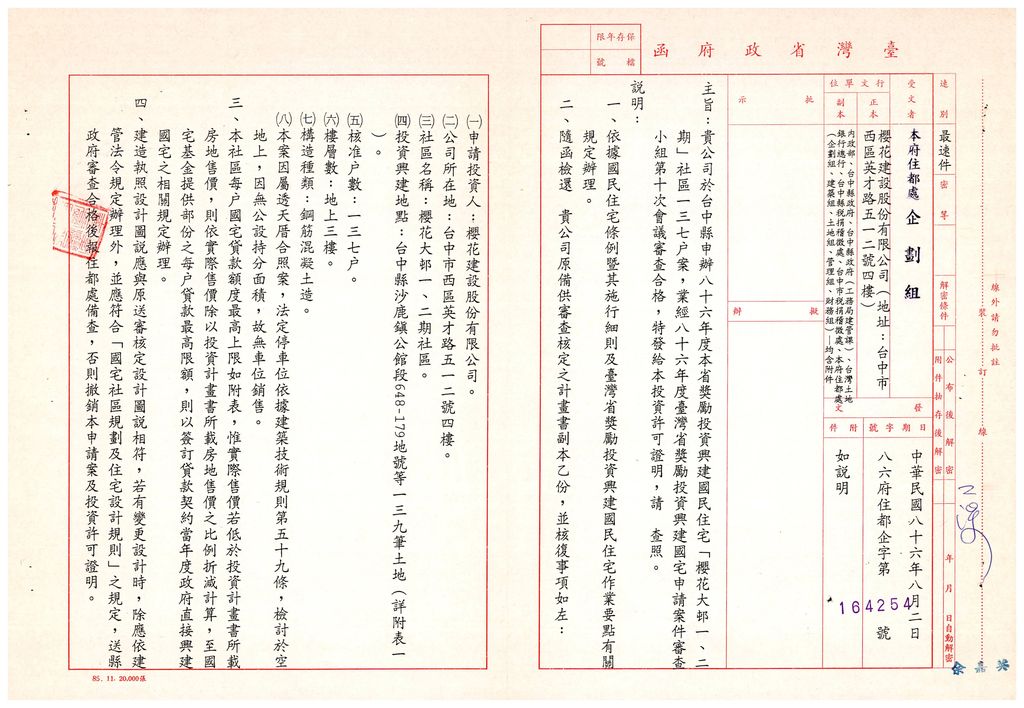 臺灣省政府函
保存年限
檔號
速別
最速件
密等
解密條件
公布後解密
附件抽存後解密
年 月 日自動解密
受文者
本府住都處企劃組
行文單位
正本
櫻花建設股份有限公司(地址:台中市
西區英才路五一二號四樓)
副本
內政部、台中縣政府、台中縣政府(工務局建管課)、台灣土地
銀行總行、台中縣稅捐稽徵處、台中市稅捐稽徵處、本府住都處
(企劃組、建築組、土地組、管理組、財務組)—均含附件
發文
日期
中華民國八十六年八月二日
字號
八六府住都企字第164254號
附件
如說明
批示
擬辦
主旨:貴公司於台中縣申辦八十六年度本省獎勵投資興建國民住宅「櫻花大邨一、二
期」社區一三七户案,業經八十六年度臺灣省獎勵投資興建國宅申請案件審查
小組第十次會議審查合格,特發給本投資許可證明,請 查照。
說明:
一、依據國民住宅條例暨其施行細則及臺灣省獎勵投資興建國民住宅作業要點有關
規定辦理。
二、隨函檢還 貴公司原備供審查核定之計畫書副本乙份,並核復事項如左:
㈠申請投資人:櫻花建設股份有限公司。
㈡公司所在地:台中市西區英才路五一二號四樓。
㈢社區名稱:櫻花大邨一、二期社區。
㈣投資興建地點:台中縣沙鹿鎮公館段648-179地號等一三九筆土地(詳附表一
)。
㈤核准户數:一三七户。
㈥樓層數:地上三樓。
㈦構造種類:鋼筋混凝土造。
㈧本案因屬透天厝合照案,法定停車位依據建築技術規則第五十九條,檢討於空
地上,因無公設持分面積,故無車位銷售。
三、本社區每户國宅貸款額度最高上限如附表,惟實際售價若低於投資計畫書所載
房地售價,則依實際售價除以投資計畫書所載房地售價之比例折減計算,至國
宅基金提供部份之每户貸款最高限額,則以簽訂貸款契約當年度政府直接興建
國宅之相關規定辦理。
四、建造執照設計圖說應與原送審核定設計圖說相符,若有變更設計時,除應依建
管法令規定辦理外,並應符合「國宅社區規劃及住宅設計規則」之規定,送縣
政府審查合格後報住都處備查,否則撤銷本申請案及投資許可證明。
85.11.20,000張
裝訂線
線外請勿批註
余嘉英